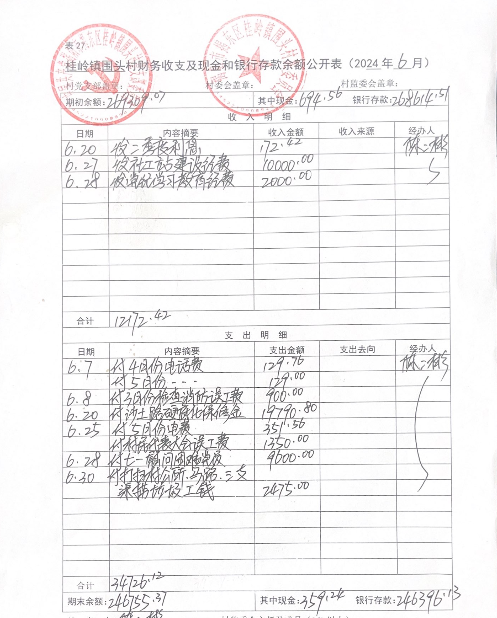 表 27
桂岭镇围头村财务收支及现金和银行存款余额公开表（2024 年 6 月）
村党支部盖章： 村委会盖章： 村监委会盖章：
期初余额：269309.07 其中现金：694.56 银行存款：268614.51
收 入 明 细
日期 内容摘要 收入金额 收入来源 经办人
6.20 收二季度利息 172.42
6.27 收社工站建设经费 10000.00
6.28 收党组织学习教育经费 2000.00
合计 12172.42
支 出 明 细
日期 内容摘要 支出金额 支出去向 经办人
6.7 付4月份电话费 129.76
付5月份 - - - 129.00
6.8 付3月份 消防误工费 900.00
6.20 付 硬化保修金 19790.80
6.25 付5月份电费 351.56
付村民代表大会误工费 1350.00
6.28 付七一慰问困难党员 9600.00
6.30 付打扫村公所.马路.三支
渠 垃圾工钱 2475.00
合计 34726.12
期末余额：246755.37 其中现金：359.24 银行存款：246396.13